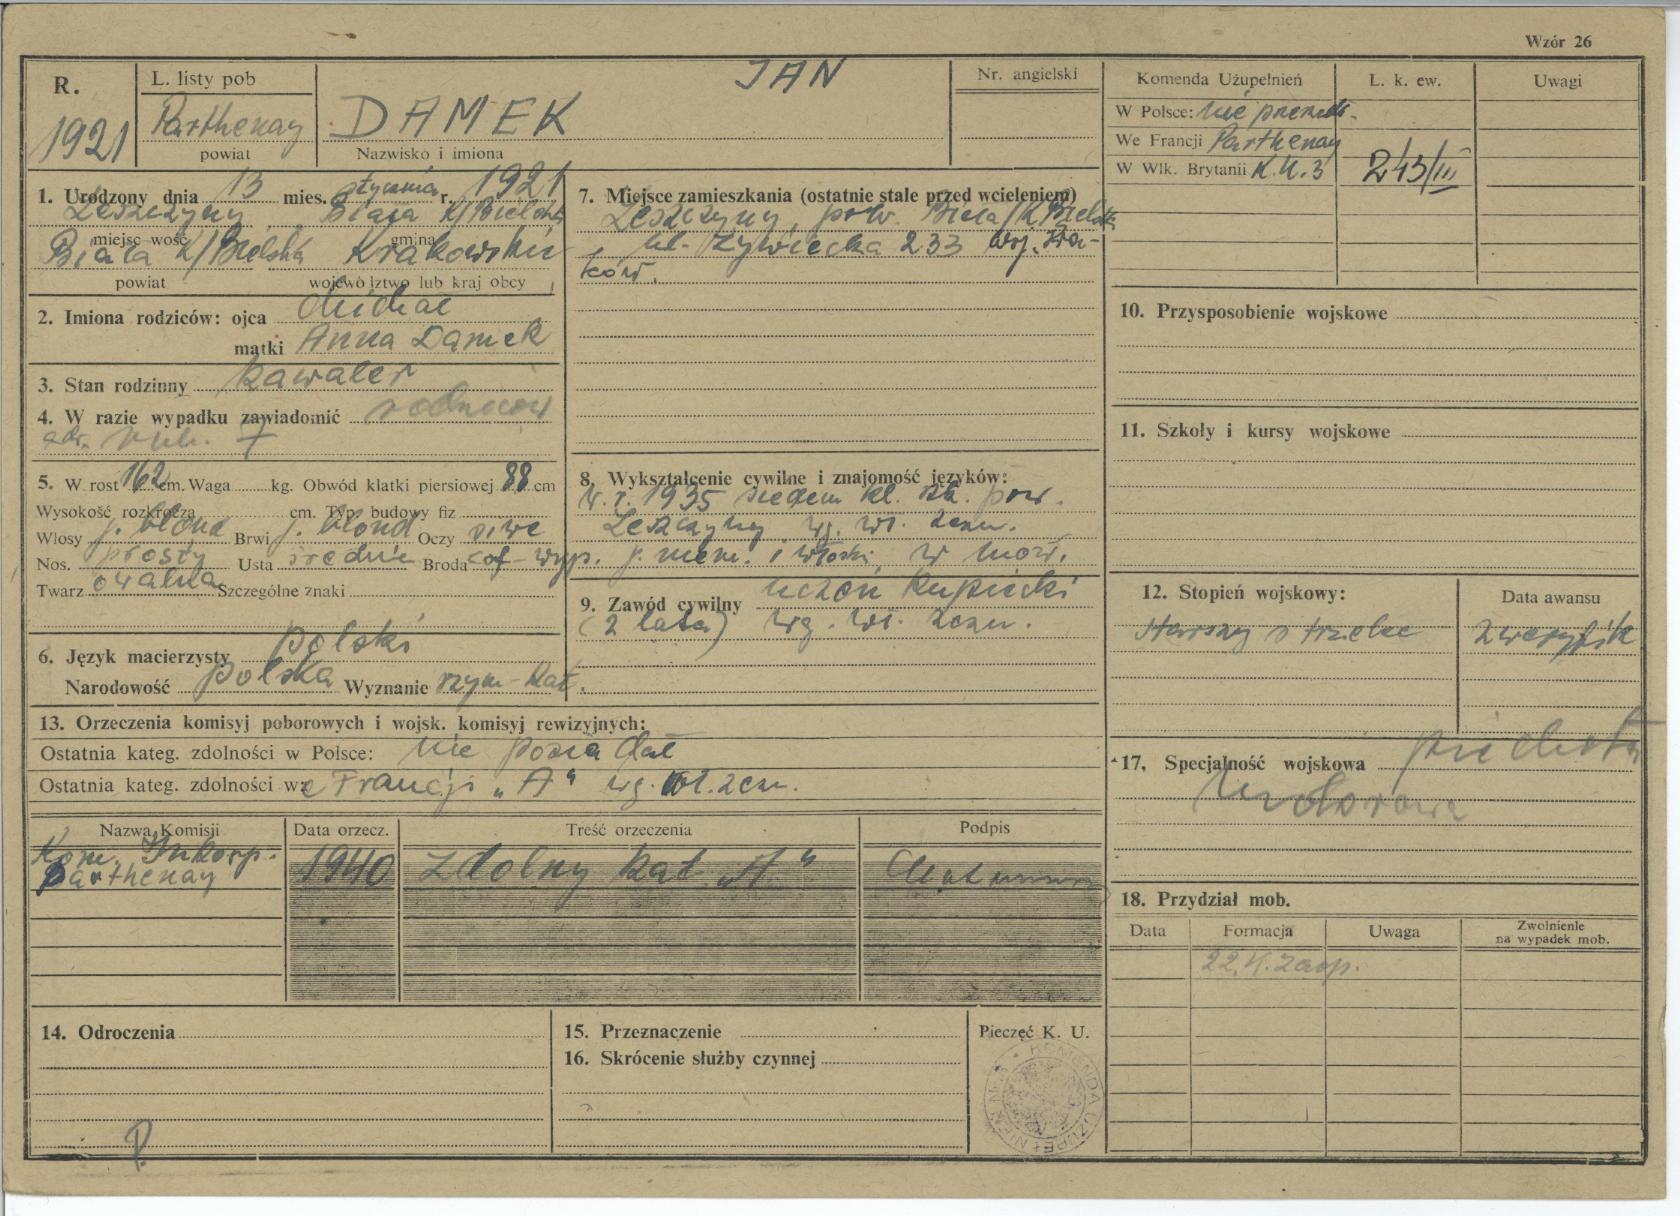 Wzór 26
R.
1921
L. listy pob
Parthenay
powiat
JAN
DAMEK
Nazwisko i imiona
Nr. angielski
Komenda Użupełnień
L. k. ew.
Uwagi
W Polsce: nie
We Francji Parthenay
W Wlk. Brytanii K.U.3
243/III
1. Urodzony dnia 13 mies. stycznia r. 1921
Leszczyny Biała k/Bielska
miejscowość gmina
Biała k/Bielska Krakowskie
powiat wojewo lztwo lub kraj obcy
2. Imiona rodziców: ojca Michał
matki Anna Damek
3. Stan rodzinny kawaler
4. W razie wypadku zawiadomić rodziców
adr. rub. 7
5. W rost 162 cm. Waga kg. Obwód klatki piersiowej 88 cm
Wysokość rozkrocza cm. Typ. budowy fiz
Włosy j. blond Brwi j. blond Oczy siwe
Nos. prosty Usta średnie Broda cof-wyp.
Twarz owalna Szczególne znaki
6. Język macierzysty polski
Narodowość polska Wyznanie rzym-kat.
7. Miejsce zamieszkania (ostatnie stale przed wcieleniem)
Leszczyny, pow. Biała/k. Bielska
ul. Żywiecka 233 woj. Kra-
ków.
8. Wykształcenie cywilne i znajomość języków:
w. r. 1935 siedem kl. szk. pow.
Leszczyny wg. wł. zezn.
j. niem. i włoski, w mow.
9. Zawód cywilny uczeń kupiecki
(2 lata) wg. wł. zezn.
10. Przysposobienie wojskowe
11. Szkoły i kursy wojskowe
12. Stopień wojskowy:
Data awansu
starszy strzelec
zweryfik
13. Orzeczenia komisyj poborowych i wojsk. komisyj rewizyjnych:
Ostatnia kateg. zdolności w Polsce: nie posiadał
Ostatnia kateg. zdolności w:e Francji "A" wg. wł. zezn.
Nazwa Komisji
Data orzecz.
Treść orzeczenia
Podpis
Kom. Inkorp.
Parthenay
1940
Zdolny kat "A"
17. Specjalność wojskowa piechota
18. Przydział mob.
Data
Formacja
Uwaga
Zwolnienie
na wypadek mob.
22. K. Zaop.
14. Odroczenia
15. Przeznaczenie
16. Skrócenie służby czynnej
Pieczęć K. U.
KOMENDA UZUPEŁNIEŃ Nr. 3
P.